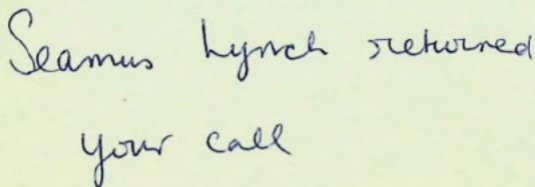 Seamus Lynch returned
your call